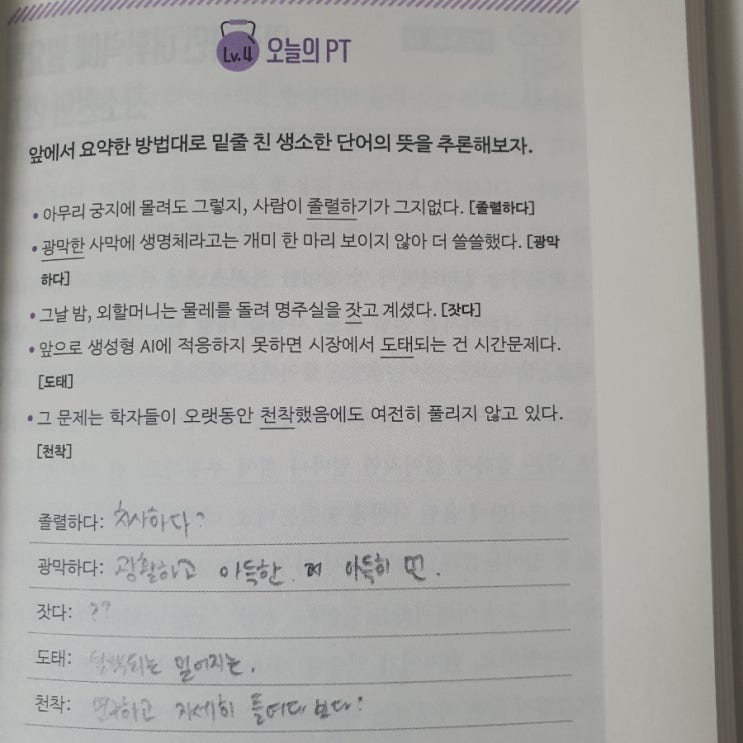 Lv.4 오늘의 PT
앞에서 요약한 방법대로 밑줄 친 생소한 단어의 뜻을 추론해보자.
• 아무리 궁지에 몰려도 그렇지, 사람이 졸렬하기가 그지없다. [졸렬하다]
• 광막한 사막에 생명체라고는 개미 한 마리 보이지 않아 더 쓸쓸했다. [광막
하다]
• 그날 밤, 외할머니는 물레를 돌려 명주실을 잣고 계셨다. [잣다]
• 앞으로 생성형 AI에 적응하지 못하면 시장에서 도태되는 건 시간문제다.
[도태]
• 그 문제는 학자들이 오랫동안 천착했음에도 여전히 풀리지 않고 있다.
[천착]
졸렬하다: 치사하다?
광막하다: 광활하고 아득한. 아득히 먼.
잣다: ??
도태: 멀어지는.
천착: 연구하고 자세히 들여다 보다.